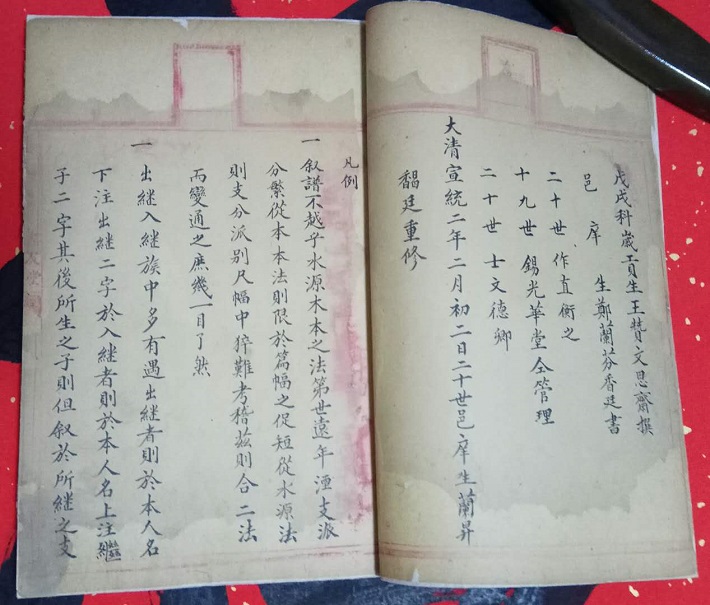 戊戌科歲貢生王贊文思齋撰
邑庠生鄭蘭芬香廷書
二十世作直衡之
十九世錫光華堂仝管理
二十世士文德卿
大清宣統二年二月初二日二十世邑庠生蘭昇
馥廷重修
凡例
一叙譜不越乎水源木本之法第世遠年湮支派
分繁從本本法則限於篇幅之促短從水源法
則支分派別尺幅中猝難考稽茲則合二法
而變通之庶幾一目了然
一
出継入継族中多有遇出継者則於本人名
下注出継二字於入継者則於本人名上注繼
子二字其後所生之子則但叙於所継之支